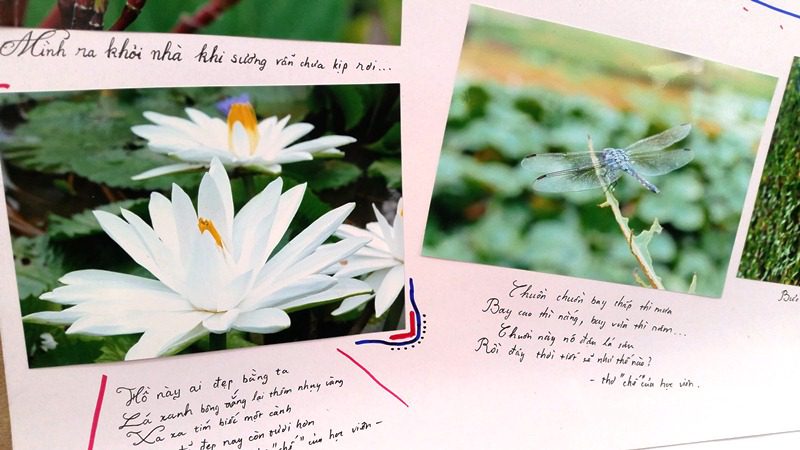 Mình ra khỏi nhà khi sương vẫn chưa kịp rơi...
Chuồn chuồn bay thấp thì mưa
Bay cao thì nắng, bay vừa thì râm...
Chuồn này nó đậu lá sen
Rồi đây thời tiết sẽ như thế nào?
- thơ "chế" của học viên.
Hồ này ai đẹp bằng ta
Lá xanh bông trắng lại thêm nhụy vàng
Xa xa tím biếc một cành
đẹp nay còn tươi hơn
"chế" của học viên -